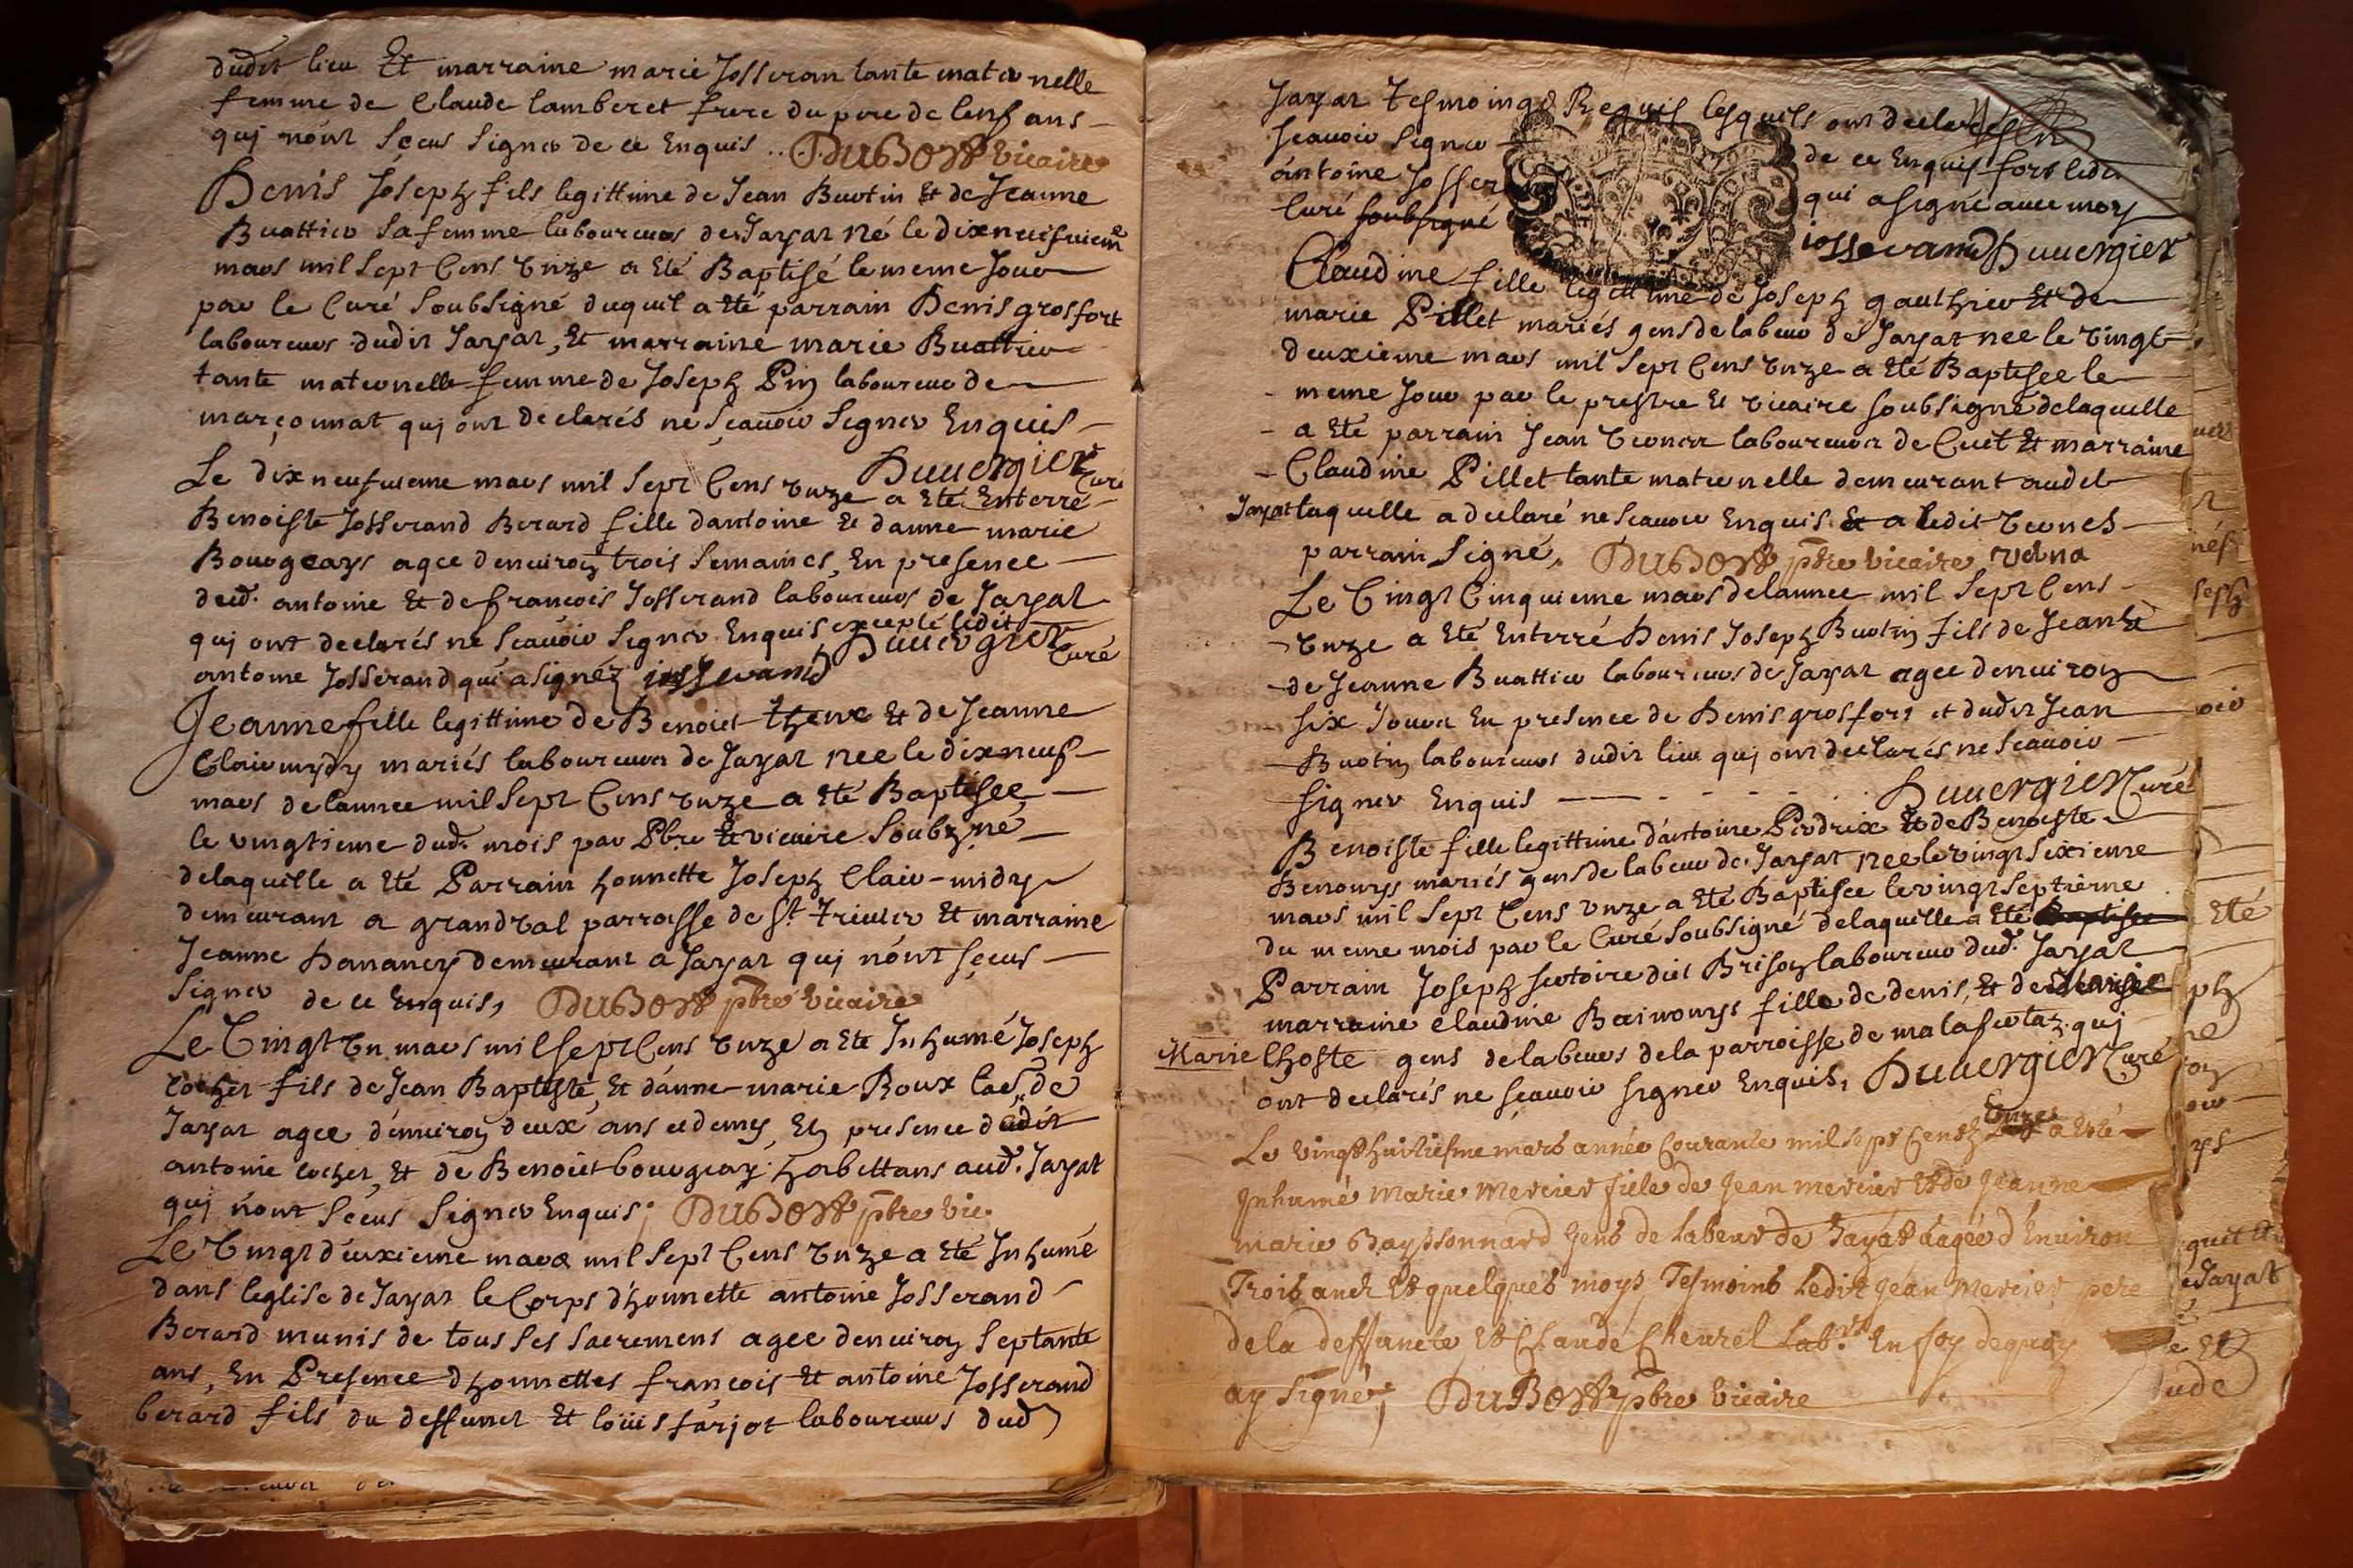 dudit lieu Et marraine marie Josseran tante maternelle
femme de Claude lamberet frere du pere de lenfans
quj nònt sceus signer de ce Enquis .. DuBost vicaire
Denis Joseph fils legittime de Jean Buotin Et de Jeanne
Buattier sa femme laboureurs de Jayat né le dixneufuieme
mars mil sept Cens vnze a Eté Baptisé le meme Jour
par le Curé soubsigné duquel a eté parrain Denis grosfort
laboureurs dudit Jayat, Et marraine marie Buattier
tante maternelle femme de Joseph Pin laboureur de
marçonnat quj ont declarés ne sçauoir signer Enquis
Duuergier Curé
Le dix neufuieme mars mil sept Cens vnze a Eté Enterré
Benoiste Josserand Berard fille dantoine Et danne marie
Bourgeays agee denuiron trois semaines, En presence
dud. antoine Et de francois Josserand laboureurs de Jayat
quj ont declarés ne scauoir signer Enquis excepté ledit
antoine Josserand qui a signéz josserand Duuergier Curé
Jeanne fille legittime de Benoist thene Et de Jeanne
Clairmydy mariés laboureurs de Jayat nee le dixneuf
mars de lannee mil sept Cens vnze a Eté Baptisee,
le vingtieme dud. mois par Pbre Et vicaire soubzné
delaquelle a Eté Parrain honnette Joseph Clair-midy
demeurant a grandval parroisse de St triuier Et marraine
Jeanne Dananey demeurant a Jayat quj nònt sçeus
signer de ce Enquis, DuBost pbre vicaire
Le Vingt vn mars mil sept Cens vnze a Ete Inhumé Joseph
cochet fils de Jean Baptiste, Et dànne marie Roux lab. de
Jayat agee dénuiron deux ans et demy, En presence dudit
antoine cochet, Et de Benoist bourgeay habittans aud. Jayat
quj nònt sceus signer Enquis; DuBost pbre vic.
Le Vingt deuxieme mars mil sept Cens vnze a Eté Inhumé
dans leglise de Jayat le Corps dhonnette antoine Josserand
Berard munis de tous ses sacremens agee denuiron septante
ans, En Presence dhonnettes françois Et antoine Josserand
berard fils du deffunct Et loüis farjot laboureurs dud
Jayat tesmoings Requis lesquels ont declarés
scauoir signer de ce Enquis fors ledit
antoine Josserand qui a signé auec moy
Curé soubsigné josserand Duuergier
Claudine fille legittime de Joseph gauthier Et de
marie Pillet mariés gens de labeur de Jayat nee le vingt
deuxieme mars mil sept Cens vnze a Eté Baptisee le
meme Jour par le prestre Et vicaire soubsigné delaquelle
a Eté parrain Jean laboureur de Cuet Et marraine
Claudine Pillet tante maternelle demeurant audit
Jayat laquelle a declaré ne scauoir Enquis Et a ledit
parrain signé, DuBost pbre vicaire
Le Vingt Cinquieme mars de lannee mil sept Cens
vnze a Eté Enterré Denis Joseph Buotin fils de Jean Et
de Jeanne Buattier laboureurs de Jayat agee denuiron
six Jours En presence de Denis grosfort et dudit Jean
Buotin laboureurs dudit lieu quj ont declarés ne scauoir
signer Enquis Duuergier Curé
Benoiste fille legittime dàntoine Perdrix Et de Benoiste
Benonrys mariés gens de labeur de Jayat nee le vingt sixieme
mars mil sept Cens vnze a Eté Baptisee le vingt septieme
du meme mois par le Curé soubsigné delaquelle a Eté Baptisee
Parrain Joseph dit Brison laboureur dud. Jayat
marraine Claudine fille de denis, Et de
Marie lhoste gens de labeurs de la parroisse de malafretaz quj
ònt declarés ne sçauoir signer Enquis, Duuergier Curé
Le vingt huitiesme mars année Courante mil sept Cens onze a esté
Inhumé Marie Mercier fille de Jean mercier Et de Jeanne
marie Bayssonnard gens de labeur de Jayat aagée dEnuiron
Trois ans Et quelques moys, Tesmoins Ledit Jean Mercier pere
de la deffuncte Et Claude Cheurel Lab.rs En foy dequoy
ay signé; DuBost pbre vicaire